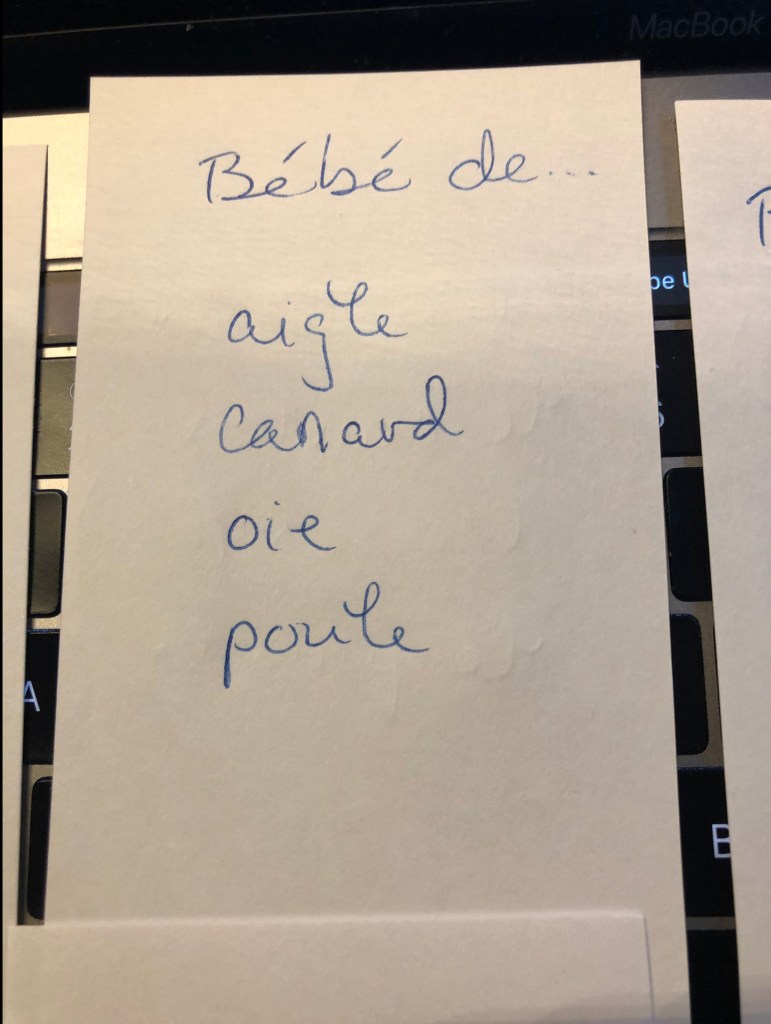 MacBook
Bébé de...
aigle
canard
oie
poule
A
B